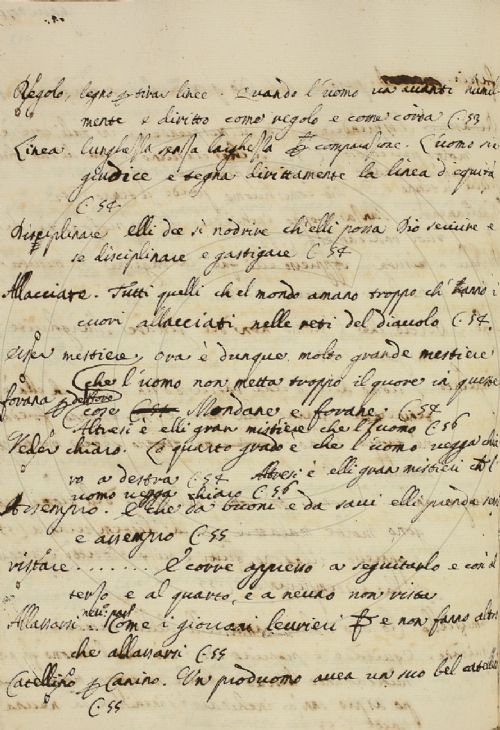 Regolo, legno p tirar linee. Quando l'uomo va avanti numil
mente e diritto come regolo e come corda C. 53
Linea. lunghessa sensa larghessa p comparasione. L'uomo sie
giudice e segna dirittamente la linea d'equità
C. 54
Disciplinare elli dee sì nodrire ch'elli possa Dio servire e
se disciplinare e gastigare C 54
Allacciate. Tutti quelli ch'el mondo amano troppo ch'anno i
cuori allacciati nelle reti del diavolo C 54
esser mestiere, ora è dunque molto grande mestiere
che l'uomo non metta troppo il quore in queste
forana p
cose C 54 Mondane e forane. C. 54
Altresì è elli gran mistiere che l'uomo C 56
Veder chiaro. Lo quarto grado e che l'uomo vegga chia
ro a destra C 54 Altresì è elli gran mistieri ch l
uomo vegga chiaro C 56
Assempro. E che da buoni e da savi elli prenda
e assempro C 55
ristare ....... E corre appresso a seguitarlo e con'al
terso e al quarto, e a neuno non rista
Allassarsi neu. pass Come i giovani levrieri p e non fanno altro
che allassarsi C 55
Catellino p Canino. Un produomo avea un suo bel catello
C. 55